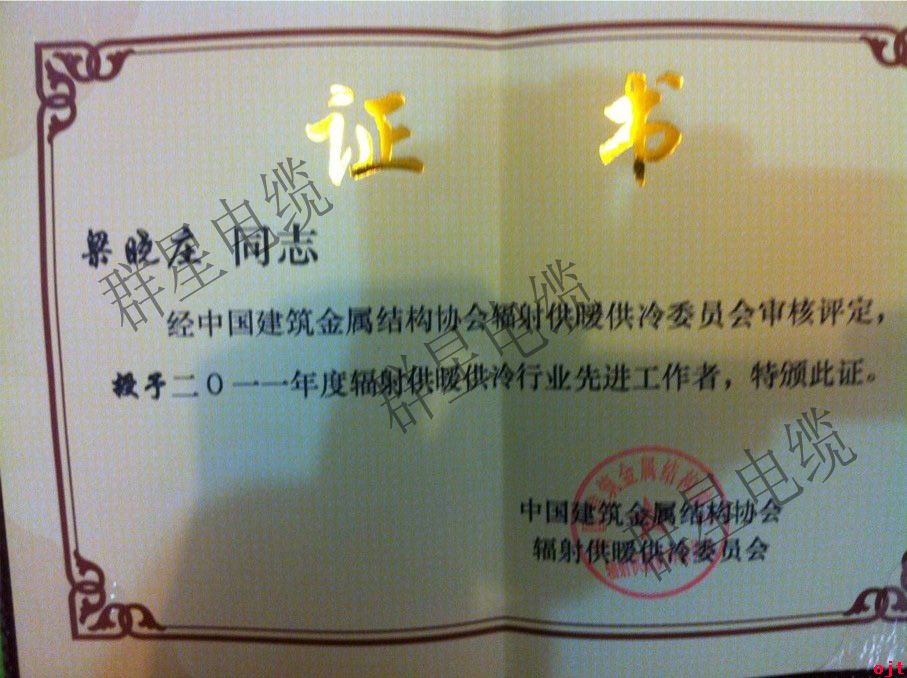 证书
梁晓 同志
经中国建筑金属结构协会辐射供暖供冷委员会审核评定，
授予二〇一一年度辐射供暖供冷行业先进工作者，特颁此证。
中国建筑金属结构协会
辐射供暖供冷委员会
群星电缆
群星电缆
群星电缆
ojt